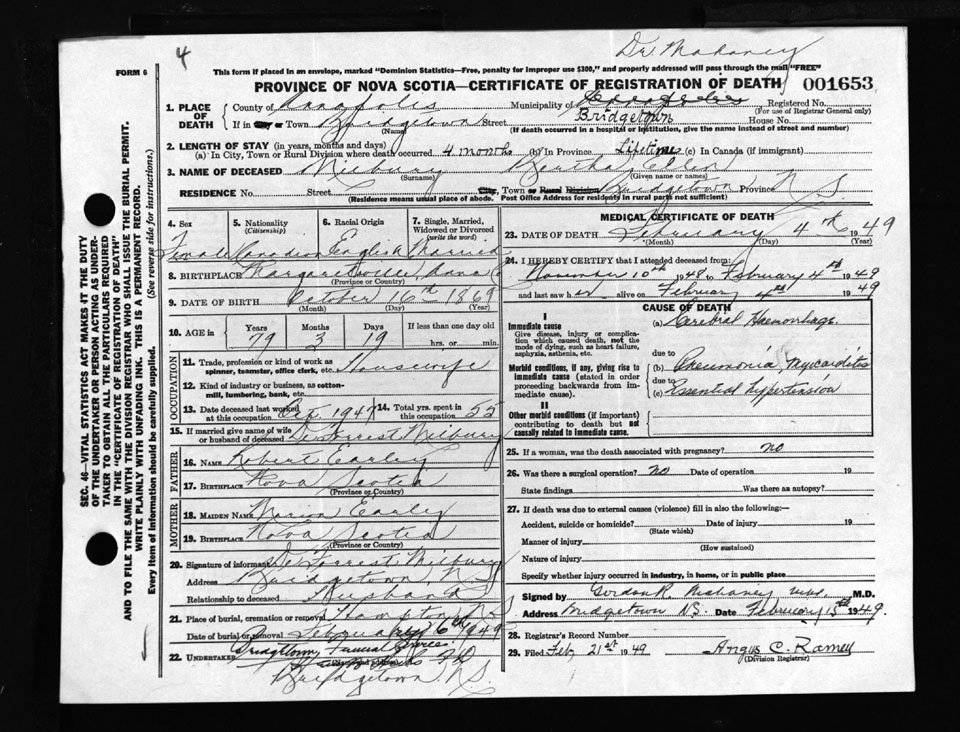 4
Dr. Mahaney
FORM 6
This form if placed in an envelope, marked "Dominion Statistics—Free, penalty for improper use $300," and properly addressed will pass through the mail "FREE"
PROVINCE OF NOVA SCOTIA—CERTIFICATE OF REGISTRATION OF DEATH 001653
SEC. 46—VITAL STATISTICS ACT MAKES IT THE DUTY
OF THE UNDERTAKER OR PERSON ACTING AS UNDER-
TAKER TO OBTAIN ALL THE PARTICULARS REQUIRED
IN THE "CERTIFICATE OF REGISTRATION OF DEATH"
AND TO FILE THE SAME WITH THE DIVISION REGISTRAR WHO SHALL ISSUE THE BURIAL PERMIT.
WRITE PLAINLY WITH UNFADING INK. THIS IS A PERMANENT RECORD.
Every item of Information should be carefully supplied. (See reverse side for instructions.)
1. PLACE OF DEATH
County of Annapolis Municipality of Registered No.
(For use of Registrar General only)
If in City or Town Bridgetown Street Bridgetown House No.
(Name) (If death occurred in a hospital or institution, give the name instead of street and number)
2. LENGTH OF STAY (in years, months and days)
(a) In City, Town or Rural Division where death occurred 4 months (b) In Province Lifetime (c) In Canada (if immigrant)
3. NAME OF DECEASED Milbury Bertha
(Surname) (Given name or names)
RESIDENCE No. Street City, Town or Rural Division Bridgetown Province N S
(Residence means usual place of abode. Post Office Address for residents in rural parts not sufficient)
4. Sex 5. Nationality (Citizenship) 6. Racial Origin 7. Single, Married, Widowed or Divorced (write the word)
Female Canadian English Married
8. BIRTHPLACE Margaretsville, Anna Co
(Province or Country)
9. DATE OF BIRTH October 16th 1869
(Month) (Day) (Year)
10. AGE in Years Months Days If less than one day old
79 3 19 hrs. or min.
OCCUPATION
11. Trade, profession or kind of work as spinner, teamster, office clerk, etc. Housewife
12. Kind of industry or business, as cotton-mill, lumbering, bank, etc.
13. Date deceased last worked at this occupation 1947 14. Total yrs. spent in this occupation 55
15. If married give name of wife or husband of deceased DeForrest Milbury
FATHER
16. NAME Robert Earley
17. BIRTHPLACE Nova Scotia
(Province or Country)
MOTHER
18. MAIDEN NAME Marion Earley
19. BIRTHPLACE Nova Scotia
(Province or Country)
20. Signature of informant DeForrest Milbury
Address Bridgetown, N.S.
Relationship to deceased Husband
21. Place of burial, cremation or removal Hampton, N.S.
Date of burial or removal February 6th 1949
22. UNDERTAKER Bridgetown Funeral Services
Bridgetown N.S.
MEDICAL CERTIFICATE OF DEATH
23. DATE OF DEATH February 4th 1949
(Month) (Day) (Year)
24. I HEREBY CERTIFY that I attended deceased from:
November 10th 1948 to February 4th 1949
and last saw her alive on February 4th 1949
CAUSE OF DEATH
I
Immediate cause (a) Cerebral Haemorrhage
Give disease, injury or complication which caused death, not the mode of dying, such as heart failure, asphyxia, asthenia, etc.
due to
Morbid conditions, if any, giving rise to immediate cause (stated in order proceeding backwards from immediate cause). (b) Pneumonia, Myocarditis
due to
(c) Essential hypertension
II
Other morbid conditions (if important) contributing to death but not causally related to immediate cause.
25. If a woman, was the death associated with pregnancy? no
26. Was there a surgical operation? no Date of operation 19
State findings Was there an autopsy?
27. If death was due to external causes (violence) fill in also the following:—
Accident, suicide or homicide? Date of injury 19
(State which)
Manner of injury
(How sustained)
Nature of injury
Specify whether injury occurred in industry, in home, or in public place
Signed by Gordon R. Mahaney M.D.
Address Bridgetown N.S. Date February 15th 1949.
28. Registrar's Record Number
29. Filed Feb 21st 1949 Angus C. Ramey
(Division Registrar)